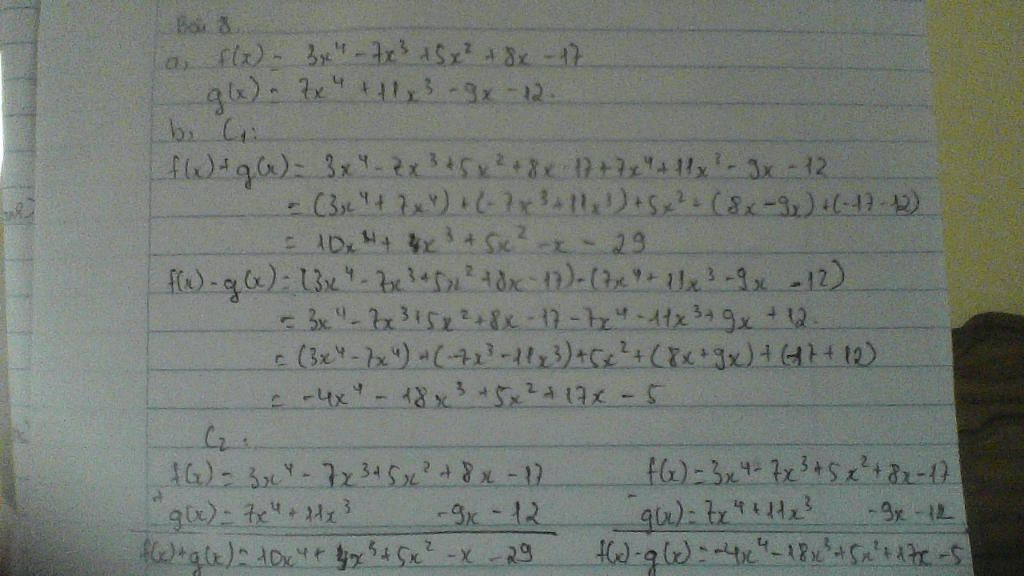 Bài 8
a, f(x) = 3x⁴ - 7x³ + 5x² + 8x - 17
g(x) = 7x⁴ + 11x³ - 9x - 12.
b, C₁:
f(x) + g(x) = 3x⁴ - 7x³ + 5x² + 8x - 17 + 7x⁴ + 11x³ - 9x - 12
= (3x⁴ + 7x⁴) + (-7x³ + 11x³) + 5x² + (8x - 9x) + (-17 - 12)
= 10x⁴ + 4x³ + 5x² - x - 29
f(x) - g(x) = (3x⁴ - 7x³ + 5x² + 8x - 17) - (7x⁴ + 11x³ - 9x - 12)
= 3x⁴ - 7x³ + 5x² + 8x - 17 - 7x⁴ - 11x³ + 9x + 12.
= (3x⁴ - 7x⁴) + (-7x³ - 11x³) + 5x² + (8x + 9x) + (-17 + 12)
= -4x⁴ - 18x³ + 5x² + 17x - 5
C₂:
f(x) = 3x⁴ - 7x³ + 5x² + 8x - 17
+
g(x) = 7x⁴ + 11x³ - 9x - 12
f(x) + g(x) = 10x⁴ + 4x³ + 5x² - x - 29
f(x) = 3x⁴ - 7x³ + 5x² + 8x - 17
-
g(x) = 7x⁴ + 11x³ - 9x - 12
f(x) - g(x) = -4x⁴ - 18x³ + 5x² + 17x - 5